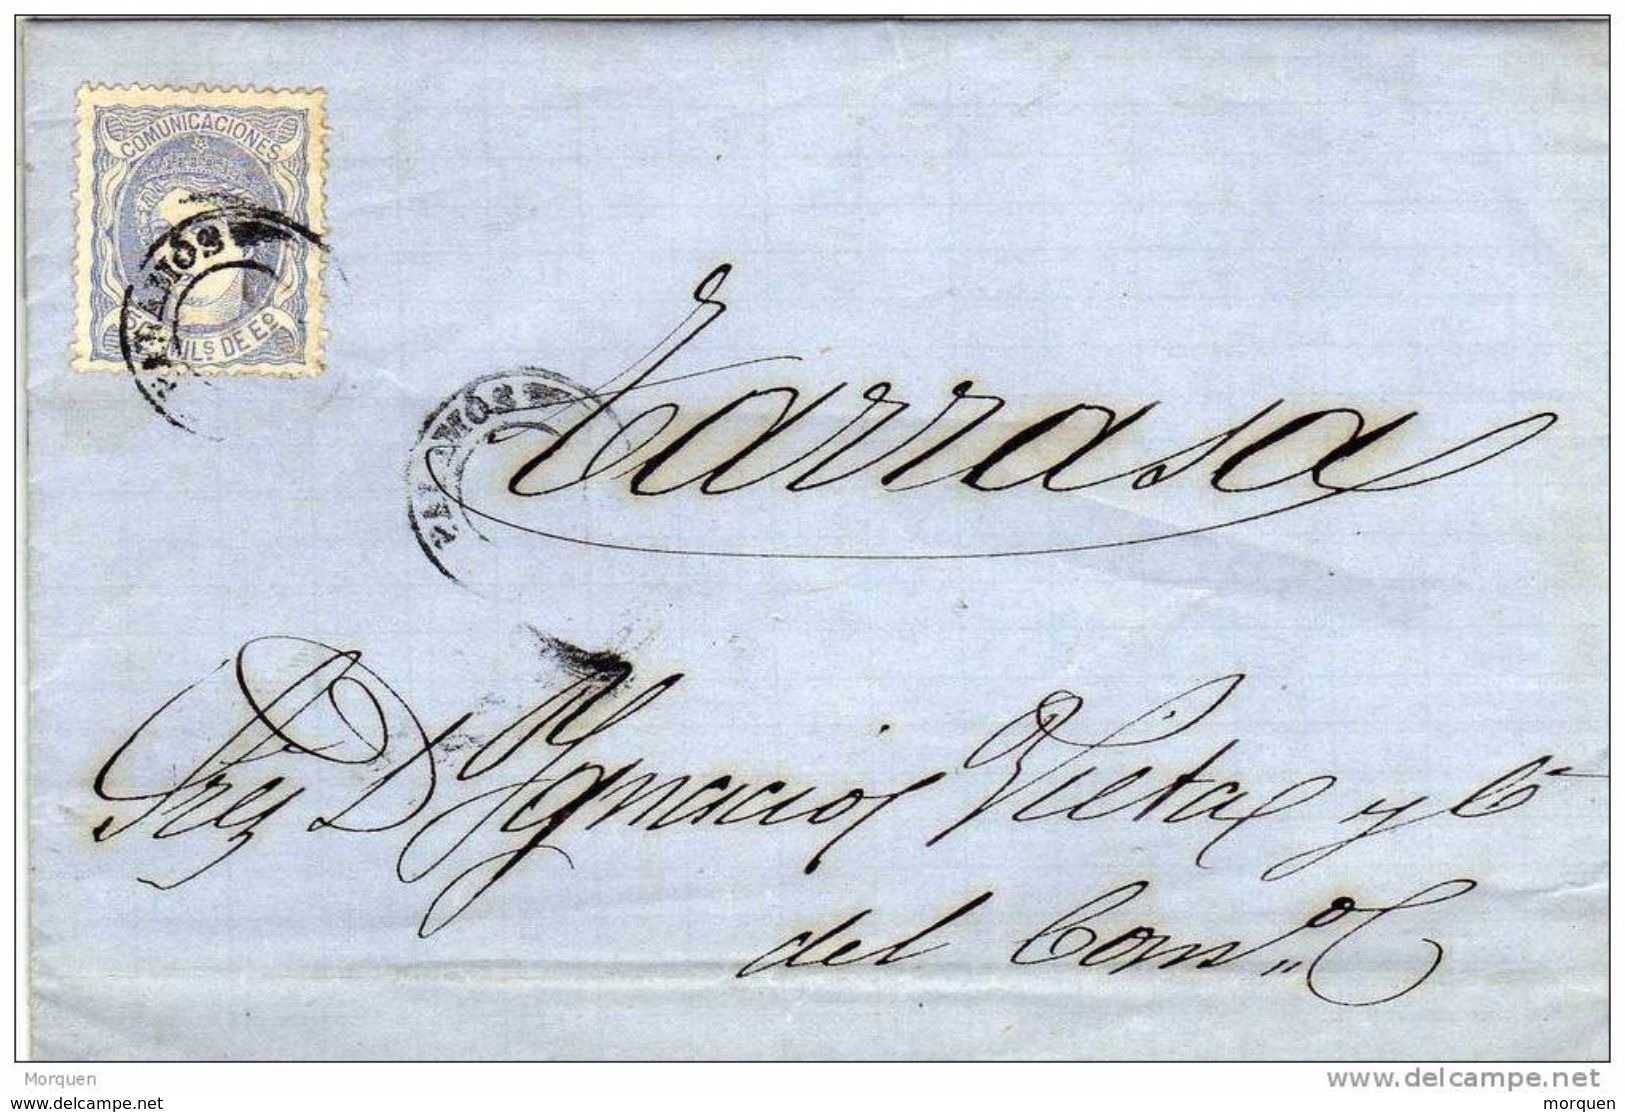 COMUNICACIONES
MILS. DE Eº
PALAMÓS
PALAMÓS
Tarrasa
Sres D Ygnacio Vieta y Cª
del Comº
Morquen
www.delcampe.com
www.delcampe.net
morquen